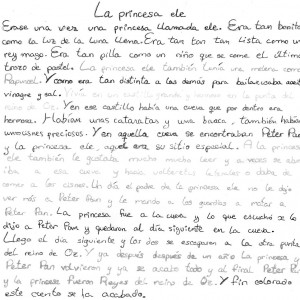 La princesa ele
Erase una vez una princesa llamada ele. Era tan bonita
como la luz de la luna llena. Era tan tan tan lista como un
rey mago. Era tan pilla como un niño que se come el último
trozo de pastel. La princesa ele también tenía una melena como
Rapunzel. Y como era tan distinta a los demás para bailar usaba aceite
vinagre y sal. Vivía en un castillo
del reino de Oz. Y en ese castillo había una cueva que por dentro era
hermosa. Habían unas cataratas y una barca, también había
unos cisnes preciosos. Y en aquella cueva se encontraban Peter Pan
y la princesa ele, aquel era su sitio especial. A la prin
ele también le gustaba mucho mucho leer y a veces se
iba a esa cueva y hacía volteretas laterales o daba de
comer a los cisnes. Un día el padre de la princesa ele no le dejó
ver más a Peter Pan y le mando a los guardias a matar a
Peter Pan. La princesa fue a la cueva y lo que escuchó se lo
dijo a Peter Pan y quedaron al día siguiente en la cueva.
Llego el día siguiente y los dos se escaparon a la otra punta
del reino de Oz. Y ya después después de un año La princesa y
Peter Pan volvieron y ya se acabo todo y al final Peter Pan y
la princesa fueron Reyes del reino de Oz. Y fin colorado
este cuento se la acabado.